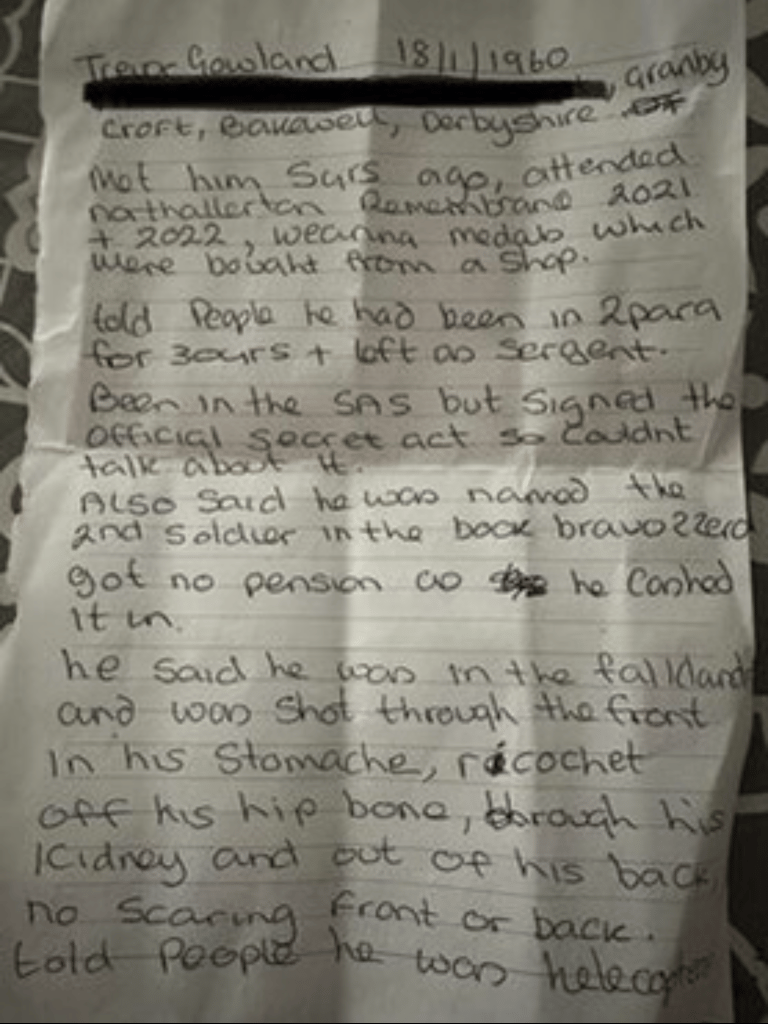 Trevor Gowland 18/1/1960
, Granby
Croft, Bakewell, Derbyshire
Met him 5yrs ago, attended
nathallerton Remembranc 2021
+ 2022, wearing medals which
were bought from a shop.
told People he had been in 2para
for 30yrs + left as Sergent.
Been in the SAS but Signed the
Official Secret act so Couldnt
talk about it.
Also Said he was named the
2nd Soldier in the book bravo2zero
got no pension as he Cashed
it in.
he said he was in the falkland
and was Shot through the front
In his Stomache, ricochet
off his hip bone, through his
Kidney and out of his back,
no Scaring front or back.
told People he was